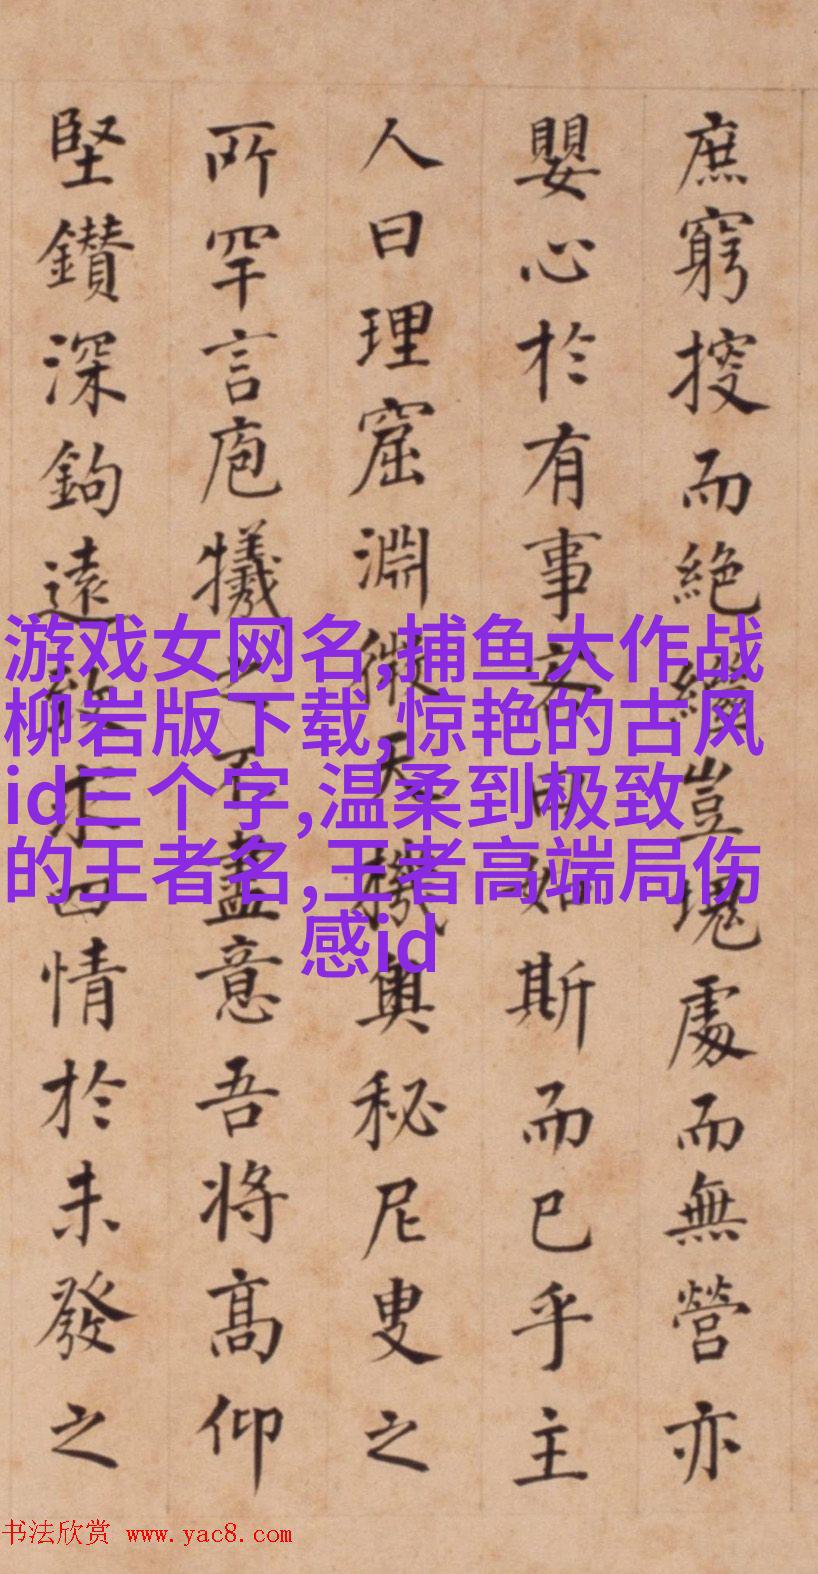 庶窮搜而絶繼豈塊處而無營亦
嬰心於有事客曰如斯而已乎主
人曰理窟淵微天機奥秘尼叟之
所罕言庖犧之不盡意吾将髙仰
堅鑽深鉤遠致求四情於未發之
游戏女网名,捕鱼大作战
柳岩版下载,惊艳的古风
id三个字,温柔到极致
的王者名,王者高端局伤
感id
书法欣赏 www.yac8.com